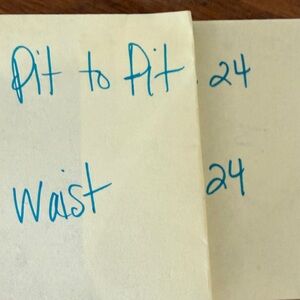 Pit to Pit 24
Waist 24